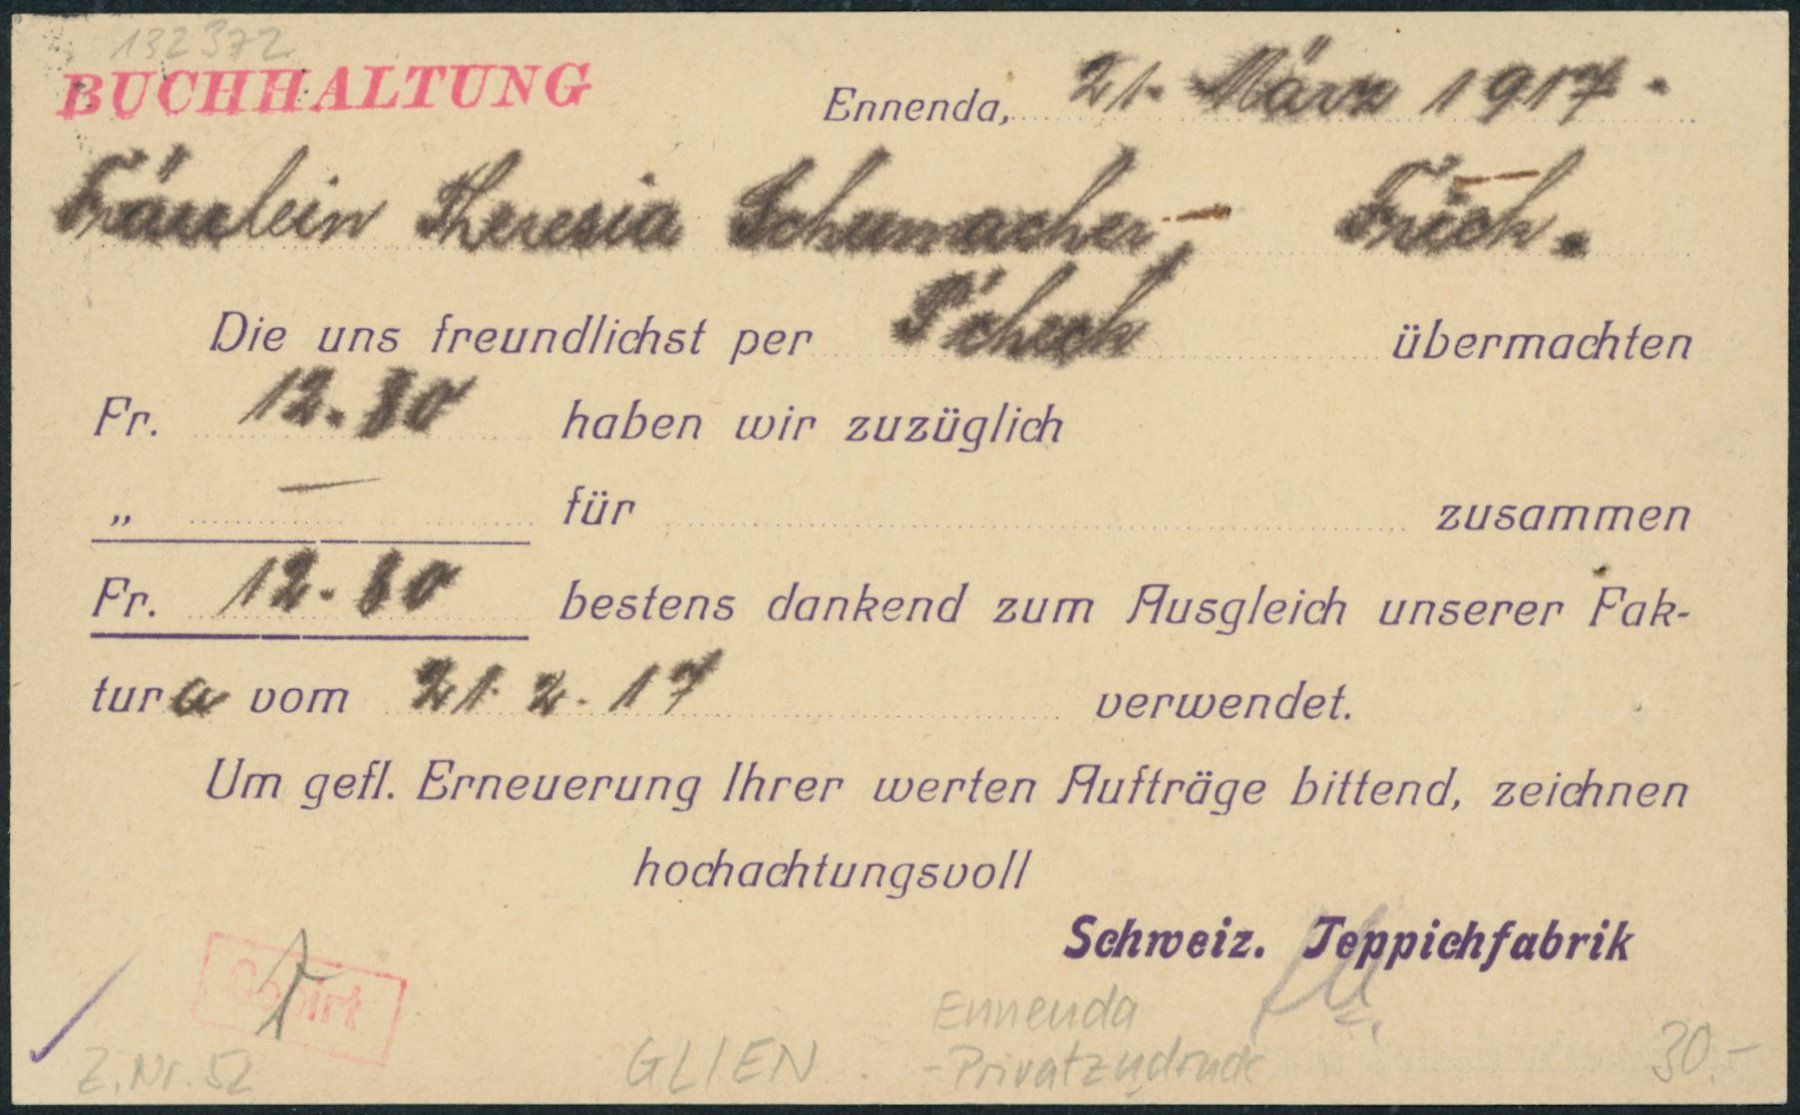 132372
BUCHHALTUNG
Ennenda, 21. März 1917.
Fräulein Theresia Schumacher, Frick.
Die uns freundlichst per P'check übermachten
Fr. 12.80 haben wir zuzüglich
„ — für zusammen
Fr. 12.80 bestens dankend zum Ausgleich unserer Fak-
tura vom 21. 2. 17 verwendet.
Um gefl. Erneuerung Ihrer werten Aufträge bittend, zeichnen
hochachtungsvoll
Schweiz. Teppichfabrik
Copirt
Ennenda
Z. Nr. 52 GLIEN - Privatzudruck 30.-